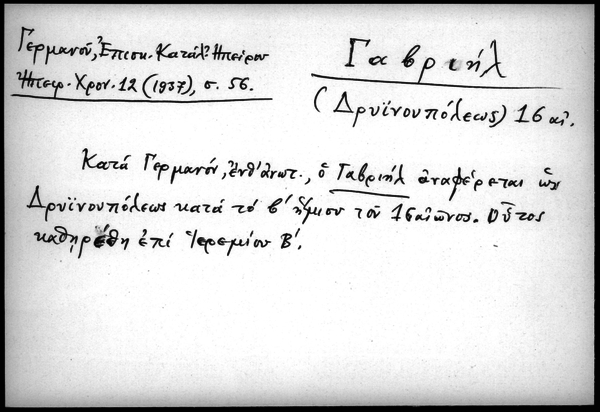 Γερμανοῦ, Ἐπισκ. Κατάλ. Ἠπείρου
Ἠπειρ. Χρον. 12 (1937), σ. 56.
Γαβριήλ
(Δρυϊνουπόλεως) 16 αἰ.
Κατά Γερμανόν, ἔνθ' ἀνωτ., ὁ Γαβριήλ ἀναφέρεται ὡς
Δρυϊνουπόλεως κατά τό β' ἥμισυ τοῦ 16 αἰῶνος. Οὗτος
καθῃρέθη ἐπί Ἱερεμίου Β'.